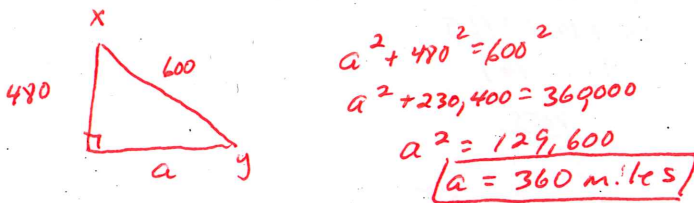 X
600
480
a
y
a² + 480² = 600²
a² + 230,400 = 360,000
a² = 129,600
a = 360 miles